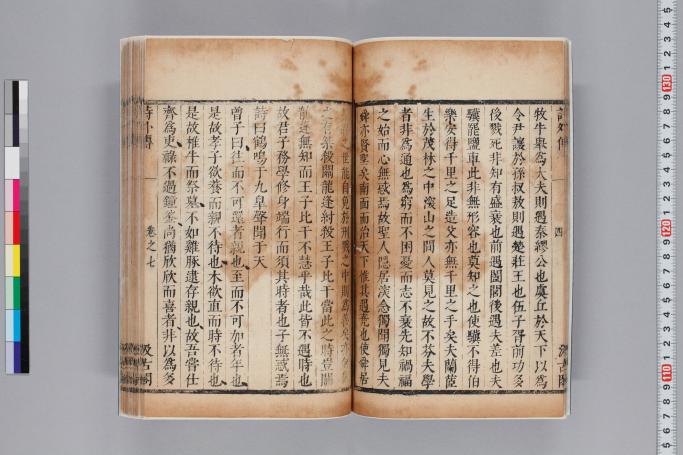 詩外傳
四
汲古閣
牧牛舉爲大夫則遇秦繆公也虞丘於天下以爲
令尹讓於孫叔敖則遇楚莊王也伍子胥前功多
後戮死非知有盛衰也前遇闔閭後遇夫差也夫
驥罷鹽車此非無形容也莫知之也使驥不得伯
樂安得千里之足造父亦無千里之手矣夫蘭茝
生於茂林之中深山之間人莫見之故不芬夫學
者非爲通也爲窮而不困憂而志不衰先知禍福
之始而心無惑焉故聖人隱居深念獨聞獨見夫
舜亦賢聖矣南面而治天下惟其遇堯也使舜居
桀紂之世能自免於刑戮之中則爲善矣亦何
位之有桀殺關龍逢紂殺王子比干當此之時豈關
龍逢無知而王子比干不慧乎哉此皆不遇時也
故君子務學修身端行而須其時者也子無惑焉
詩曰鶴鳴于九皐聲聞于天
曾子曰往而不可還者親也至而不可加者年也
是故孝子欲養而親不待也木欲直而時不待也
是故椎牛而祭墓不如雞豚逮存親也故吾嘗仕
齊爲吏祿不過鐘釜尚猶欣欣而喜者非以爲多
詩外傳
卷之七
汲古閣